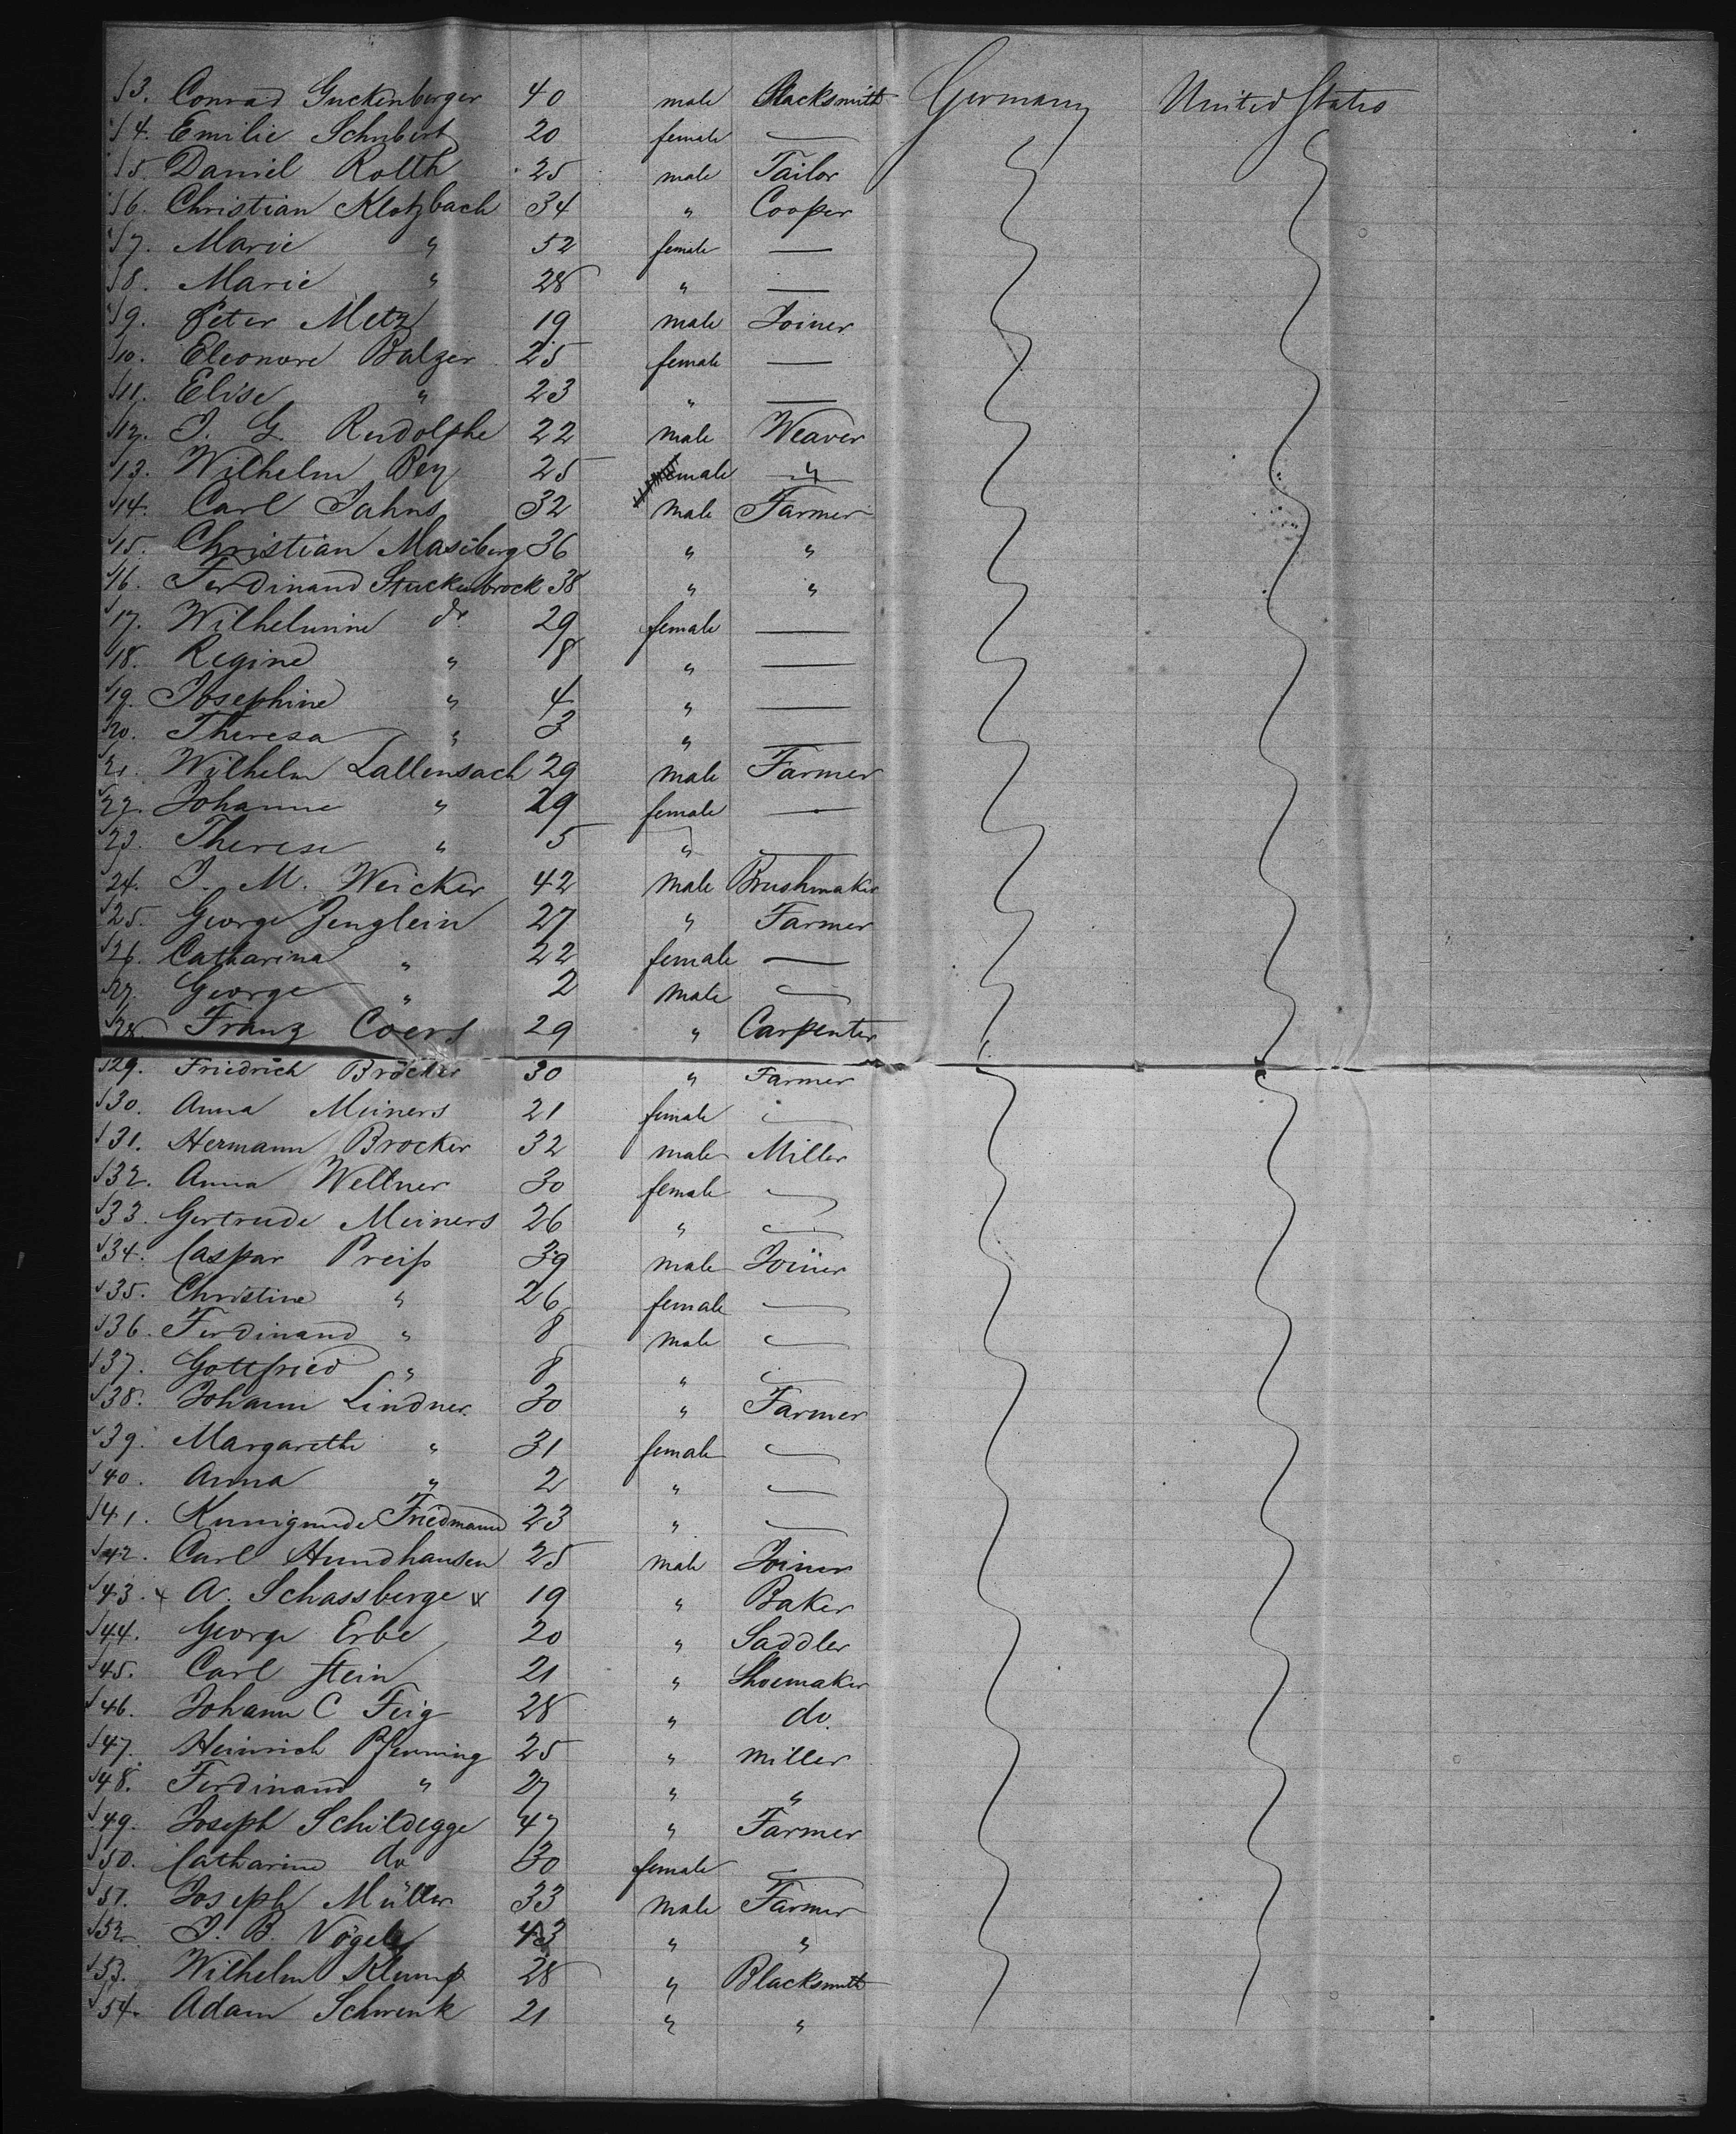 3. Conrad Guckenberger 40 male Blacksmith Germany United States
4. Emilie Schubert 20 female —
5. Daniel Rolth 25 male Tailor
6. Christian Klotzbach 34 " Cooper
7. Marie " 52 female —
8. Marie " 28 " —
9. Peter Metz 19 male Joiner
10. Eleonore Balzer 25 female —
11. Elise " 23 " —
12. J. G. Rudolphe 22 male Weaver
13. Wilhelm Bey 25 male "
14. Carl Jahns 32 male Farmer
15. Christian Masberg 36 " "
16. Ferdinand Stuckenbrock 38 " "
17. Wilhelmine do 29 female —
18. Regine " 8 " —
19. Josephine " 4 " —
20. Theresa " 3 " —
21. Wilhelm Lallensach 29 male Farmer
22. Johanne " 29 female —
23. Therese " 5 " —
24. J. M. Weicker 42 male Brushmaker
25. George Zenglein 27 " Farmer
26. Catharina " 22 female —
27. George " 2 male —
28. Franz Coers 29 " Carpenter
29. Friedrich Bröcker 30 " Farmer
30. Anna Meiners 21 female —
31. Hermann Brocker 32 male Miller
32. Anna Wellner 30 female —
33. Gertrude Meiners 26 " —
34. Caspar Preiß 39 male Joiner
35. Christine " 26 female —
36. Ferdinand " 8 male —
37. Gottfried " 8 " —
38. Johann Lindner 30 " Farmer
39. Margarethe " 31 female —
40. Anna " 2 " —
41. Kunigunde Friedmann 23 " —
42. Carl Hundhausen 25 male Joiner
43. x A. Schassberge x 19 " Baker
44. George Erbe 20 " Saddler
45. Carl Stein 21 " Shoemaker
46. Johann C Feig 28 " do.
47. Heinrich Pfenning 25 " Miller
48. Ferdinand " 27 " "
49. Joseph Schildegge 47 " Farmer
50. Catharine do 30 female —
51. Joseph Müller 33 male Farmer
52. J. B. Vögele 43 " "
53. Wilhelm Klump 28 " Blacksmith
54. Adam Schwenk 21 " "